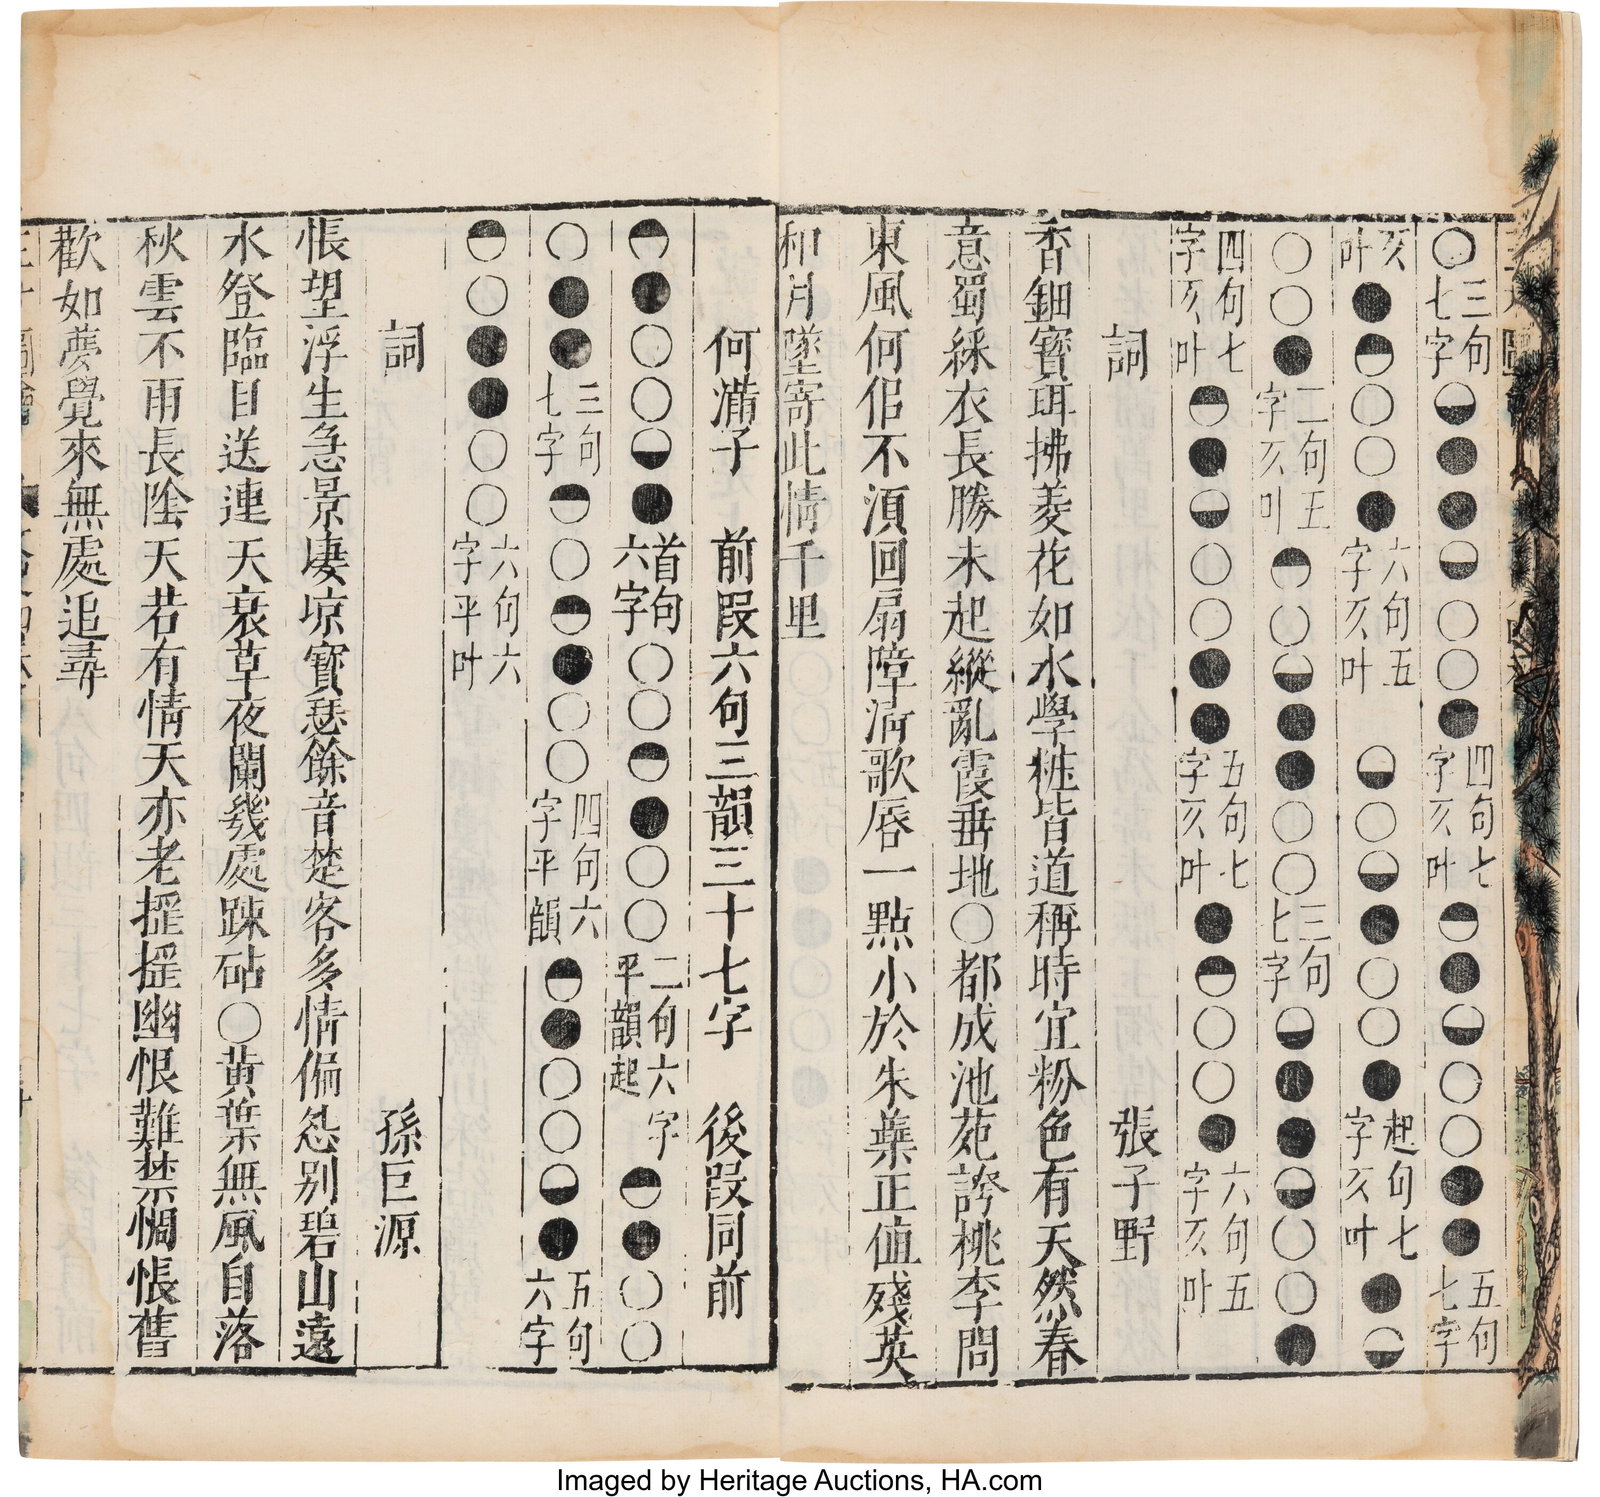 ○三句七字◒●●◒○○●四句七字仄叶◓●◒○○●●五句七字
仄叶●◓○○●六句五字仄叶◒○◒●○○●起句七字仄叶●◒
○○●二句五字仄叶◓○◒●●○○三句七字◒●●◒○○●
四句七字仄叶◓●◒○○●●五句七字仄叶●◓○○●六句五字仄叶
詞 張子野
香鈿寶珥拂菱花如水學粧皆道稱時宜粉色有天然春
意蜀綵衣長勝未起縱亂霞垂地○都成池苑誇桃李問
東風何佀不湏回扇障清歌唇一點小於朱蘂正值殘英
和月墜寄此情千里
何滿子 前段六句三韻三十七字 後段同前
◓●○○◒●首句六字○○◓●○○二句六字平韻起◓●○○
○●●三句七字◓○◓●○○四句六字平韻◓●○○◒●五句六字
◓○●●○○六句六字平叶
詞 孫巨源
悵望浮生急景凄凉寶瑟餘音楚客多情偏怨别碧山遠
水登臨目送連天衰草夜闌幾處踈砧○黄葉無風自落
秋雲不雨長陰天若有情天亦老摇摇幽恨難禁惆悵舊
歡如夢覺來無處追尋
Imaged by Heritage Auctions, HA.com